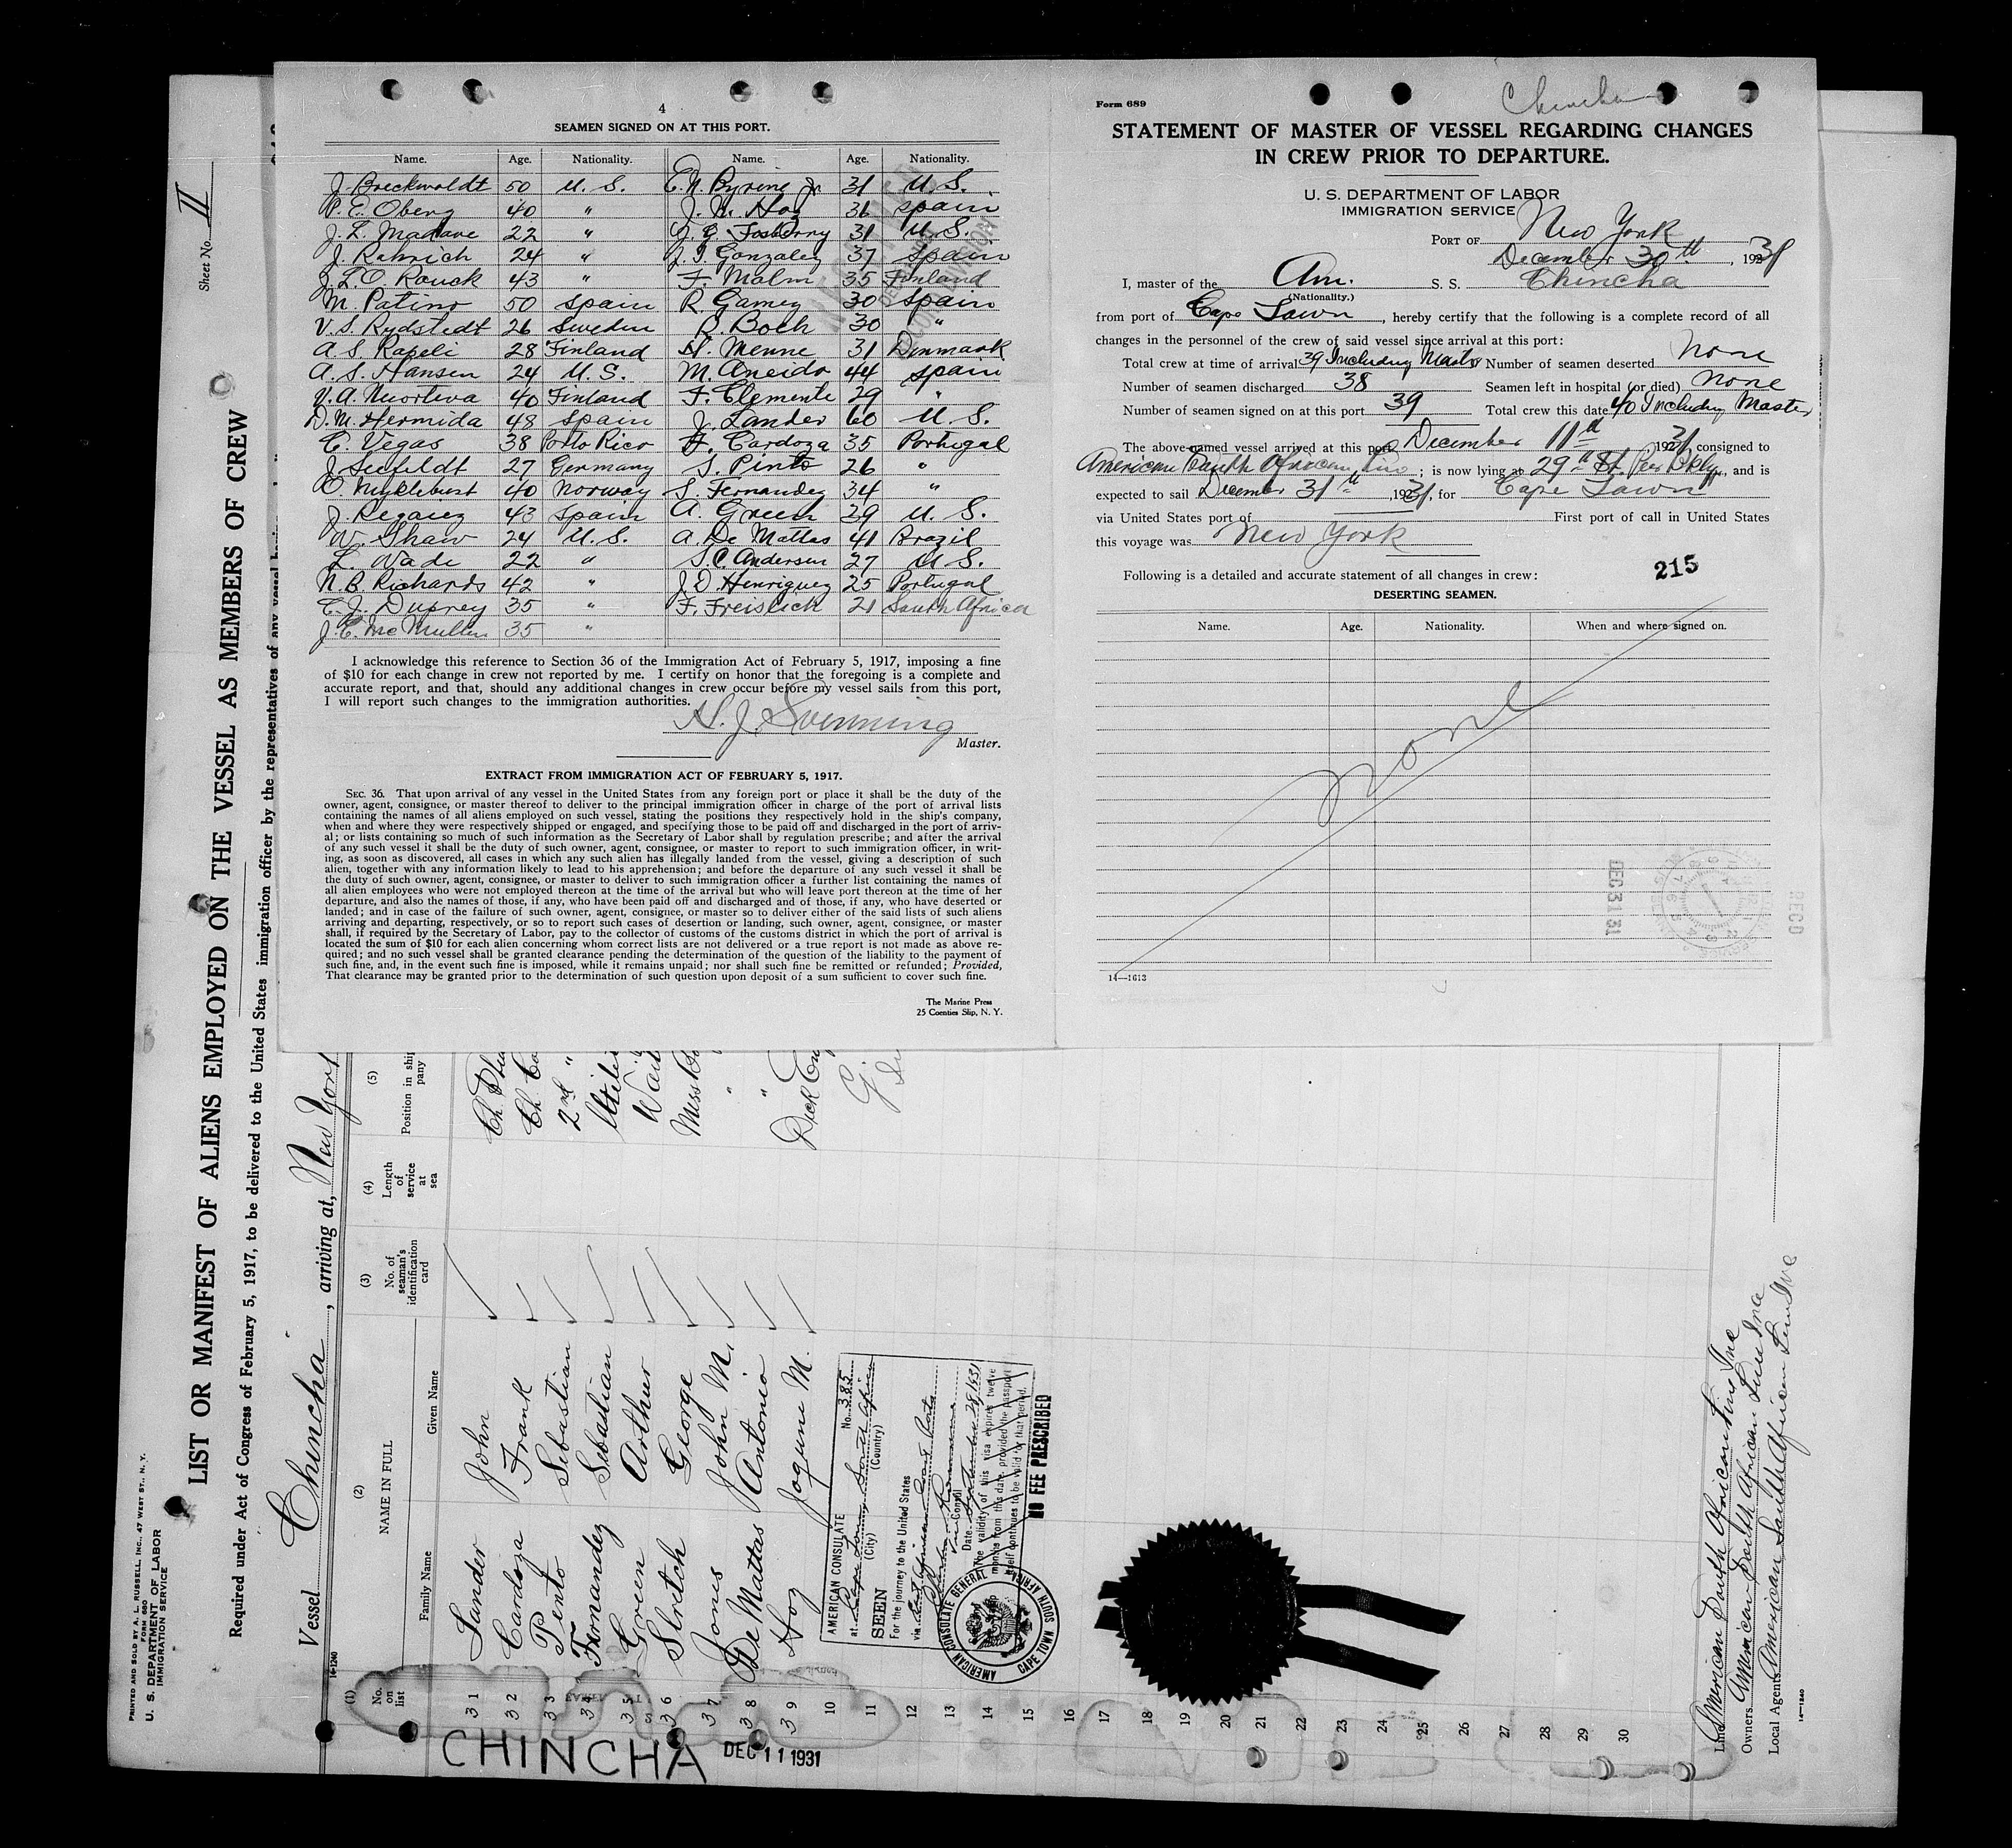 4
SEAMEN SIGNED ON AT THIS PORT.
Name. Age. Nationality. Name. Age. Nationality.
J. Breckwoldt 50 U. S. E. N. Byrine Jr. 31 U. S.
P. E. Oberg 40 " J. M. Hoz 36 Spain
J. L. Madave 22 " J. G. Fosberry 31 U. S.
J. Rahnich 24 " J. I. Gonzalez 37 Spain
J. L. O. Rauck 43 " F. Malm 35 Finland
M. Patino 50 Spain R. Gamez 30 Spain
V. S. Rydstedt 26 Sweden R. Boch 30 "
A. S. Rapeli 28 Finland H. Menne 31 Denmark
A. S. Hansen 24 U. S. M. Aneido 44 Spain
V. A. Nuorteva 40 Finland F. Clemente 29 "
D. M. Hermida 48 Spain J. Lander 60 U. S.
C. Vegas 38 Porto Rico F. Cardoza 35 Portugal
J. Seefeldt 27 Germany S. Pinto 26 "
O. Myklebust 40 Norway S. Fernandez 34 "
J. Regaug 43 Spain A. Green 39 U. S.
W. Shaw 24 U. S. A. De Mattas 41 Brazil
L. Wade 22 " S. C. Andersen 27 U. S.
N. B. Richards 42 " J. D. Henriquez 25 Portugal
E. J. Duprey 35 " F. Freislich 21 South Africa
J. E. McMullen 35 "
I acknowledge this reference to Section 36 of the Immigration Act of February 5, 1917, imposing a fine
of $10 for each change in crew not reported by me. I certify on honor that the foregoing is a complete and
accurate report, and that, should any additional changes in crew occur before my vessel sails from this port,
I will report such changes to the immigration authorities.
H. J. Svenning
Master.
EXTRACT FROM IMMIGRATION ACT OF FEBRUARY 5, 1917.
SEC. 36. That upon arrival of any vessel in the United States from any foreign port or place it shall be the duty of the
owner, agent, consignee, or master thereof to deliver to the principal immigration officer in charge of the port of arrival lists
containing the names of all aliens employed on such vessel, stating the positions they respectively hold in the ship's company,
when and where they were respectively shipped or engaged, and specifying those to be paid off and discharged in the port of arriv-
al; or lists containing so much of such information as the Secretary of Labor shall by regulation prescribe; and after the arrival
of any such vessel it shall be the duty of such owner, agent, consignee, or master to report to such immigration officer, in writ-
ing, as soon as discovered, all cases in which any such alien has illegally landed from the vessel, giving a description of such
alien, together with any information likely to lead to his apprehension; and before the departure of any such vessel it shall be
the duty of such owner, agent, consignee, or master to deliver to such immigration officer a further list containing the names of
all alien employees who were not employed thereon at the time of the arrival but who will leave port thereon at the time of her
departure, and also the names of those, if any, who have been paid off and discharged and of those, if any, who have deserted or
landed; and in case of the failure of such owner, agent, consignee, or master so to deliver either of the said lists of such aliens
arriving and departing, respectively, or so to report such cases of desertion or landing, such owner, agent, consignee, or master
shall, if required by the Secretary of Labor, pay to the collector of customs of the customs district in which the port of arrival is
located the sum of $10 for each alien concerning whom correct lists are not delivered or a true report is not made as above re-
quired; and no such vessel shall be granted clearance pending the determination of the question of the liability to the payment of
such fine, and, in the event such fine is imposed, while it remains unpaid; nor shall such fine be remitted or refunded; Provided,
That clearance may be granted prior to the determination of such question upon deposit of a sum sufficient to cover such fine.
The Marine Press
25 Coenties Slip, N. Y.
Form 689
Chincha
STATEMENT OF MASTER OF VESSEL REGARDING CHANGES
IN CREW PRIOR TO DEPARTURE.
U. S. DEPARTMENT OF LABOR
IMMIGRATION SERVICE
PORT OF New York
December 30th, 1931
I, master of the Am. S. S. Chincha
(Nationality.)
from port of Cape Town, hereby certify that the following is a complete record of all
changes in the personnel of the crew of said vessel since arrival at this port:
Total crew at time of arrival 39 Including Master Number of seamen deserted None
Number of seamen discharged 38 Seamen left in hospital (or died) None
Number of seamen signed on at this port 39 Total crew this date 40 Including Master
The above-named vessel arrived at this port December 11th 1931, consigned to
American South African Line; is now lying at 29th St. Pier Bklyn, and is
expected to sail December 31st, 1931, for Cape Town
via United States port of First port of call in United States
this voyage was New York
Following is a detailed and accurate statement of all changes in crew:
215
DESERTING SEAMEN.
Name. Age. Nationality. When and where signed on.
None
DEC 31 31
REC'D
14—1613
Sheet No. II
LIST OR MANIFEST OF ALIENS EMPLOYED ON THE VESSEL AS MEMBERS OF CREW
Required under Act of Congress of February 5, 1917, to be delivered to the United States immigration officer by the representatives of any vessel having
Vessel Chincha, arriving at New York
PRINTED AND SOLD BY A. L. RUSSELL, INC., 47 WEST ST., N. Y.
FORM 680
U. S. DEPARTMENT OF LABOR
IMMIGRATION SERVICE
14-1240
(1) (2) (3) (4) (5)
No. on list
NAME IN FULL
Family Name Given Name
No. of seaman's identification card
Length of service at sea
Position in ship
pany
31 Lander John
32 Cardoza Frank Ch
33 Pento Sebastian 2nd "
34 Fernandez Sebastian
35 Green Arthur
36 Stretch George Mess
37 Jones John M. "
38 De Mattas Antonio "
39 Hoz Joquin M. Deck
10
11
12
13
14
15
16
17
18
19
20
21
22
23
24
25
26
27
28
29
30
AMERICAN CONSULATE No. 385
at Cape Town, South Africa
(City) (Country)
SEEN
For the journey to the United States
via
Vice Consul
Date September 28 1931
The validity of this visa expires twelve
months from this date, provided the passport
itself continues to be valid for that period.
NO FEE PRESCRIBED
AMERICAN CONSULATE GENERAL
CAPE TOWN SOUTH AFRICA
CHINCHA DEC 11 1931
Line American South African Line Inc
Owners American South African Line Inc
Local Agents American South African Line Inc
14—1240